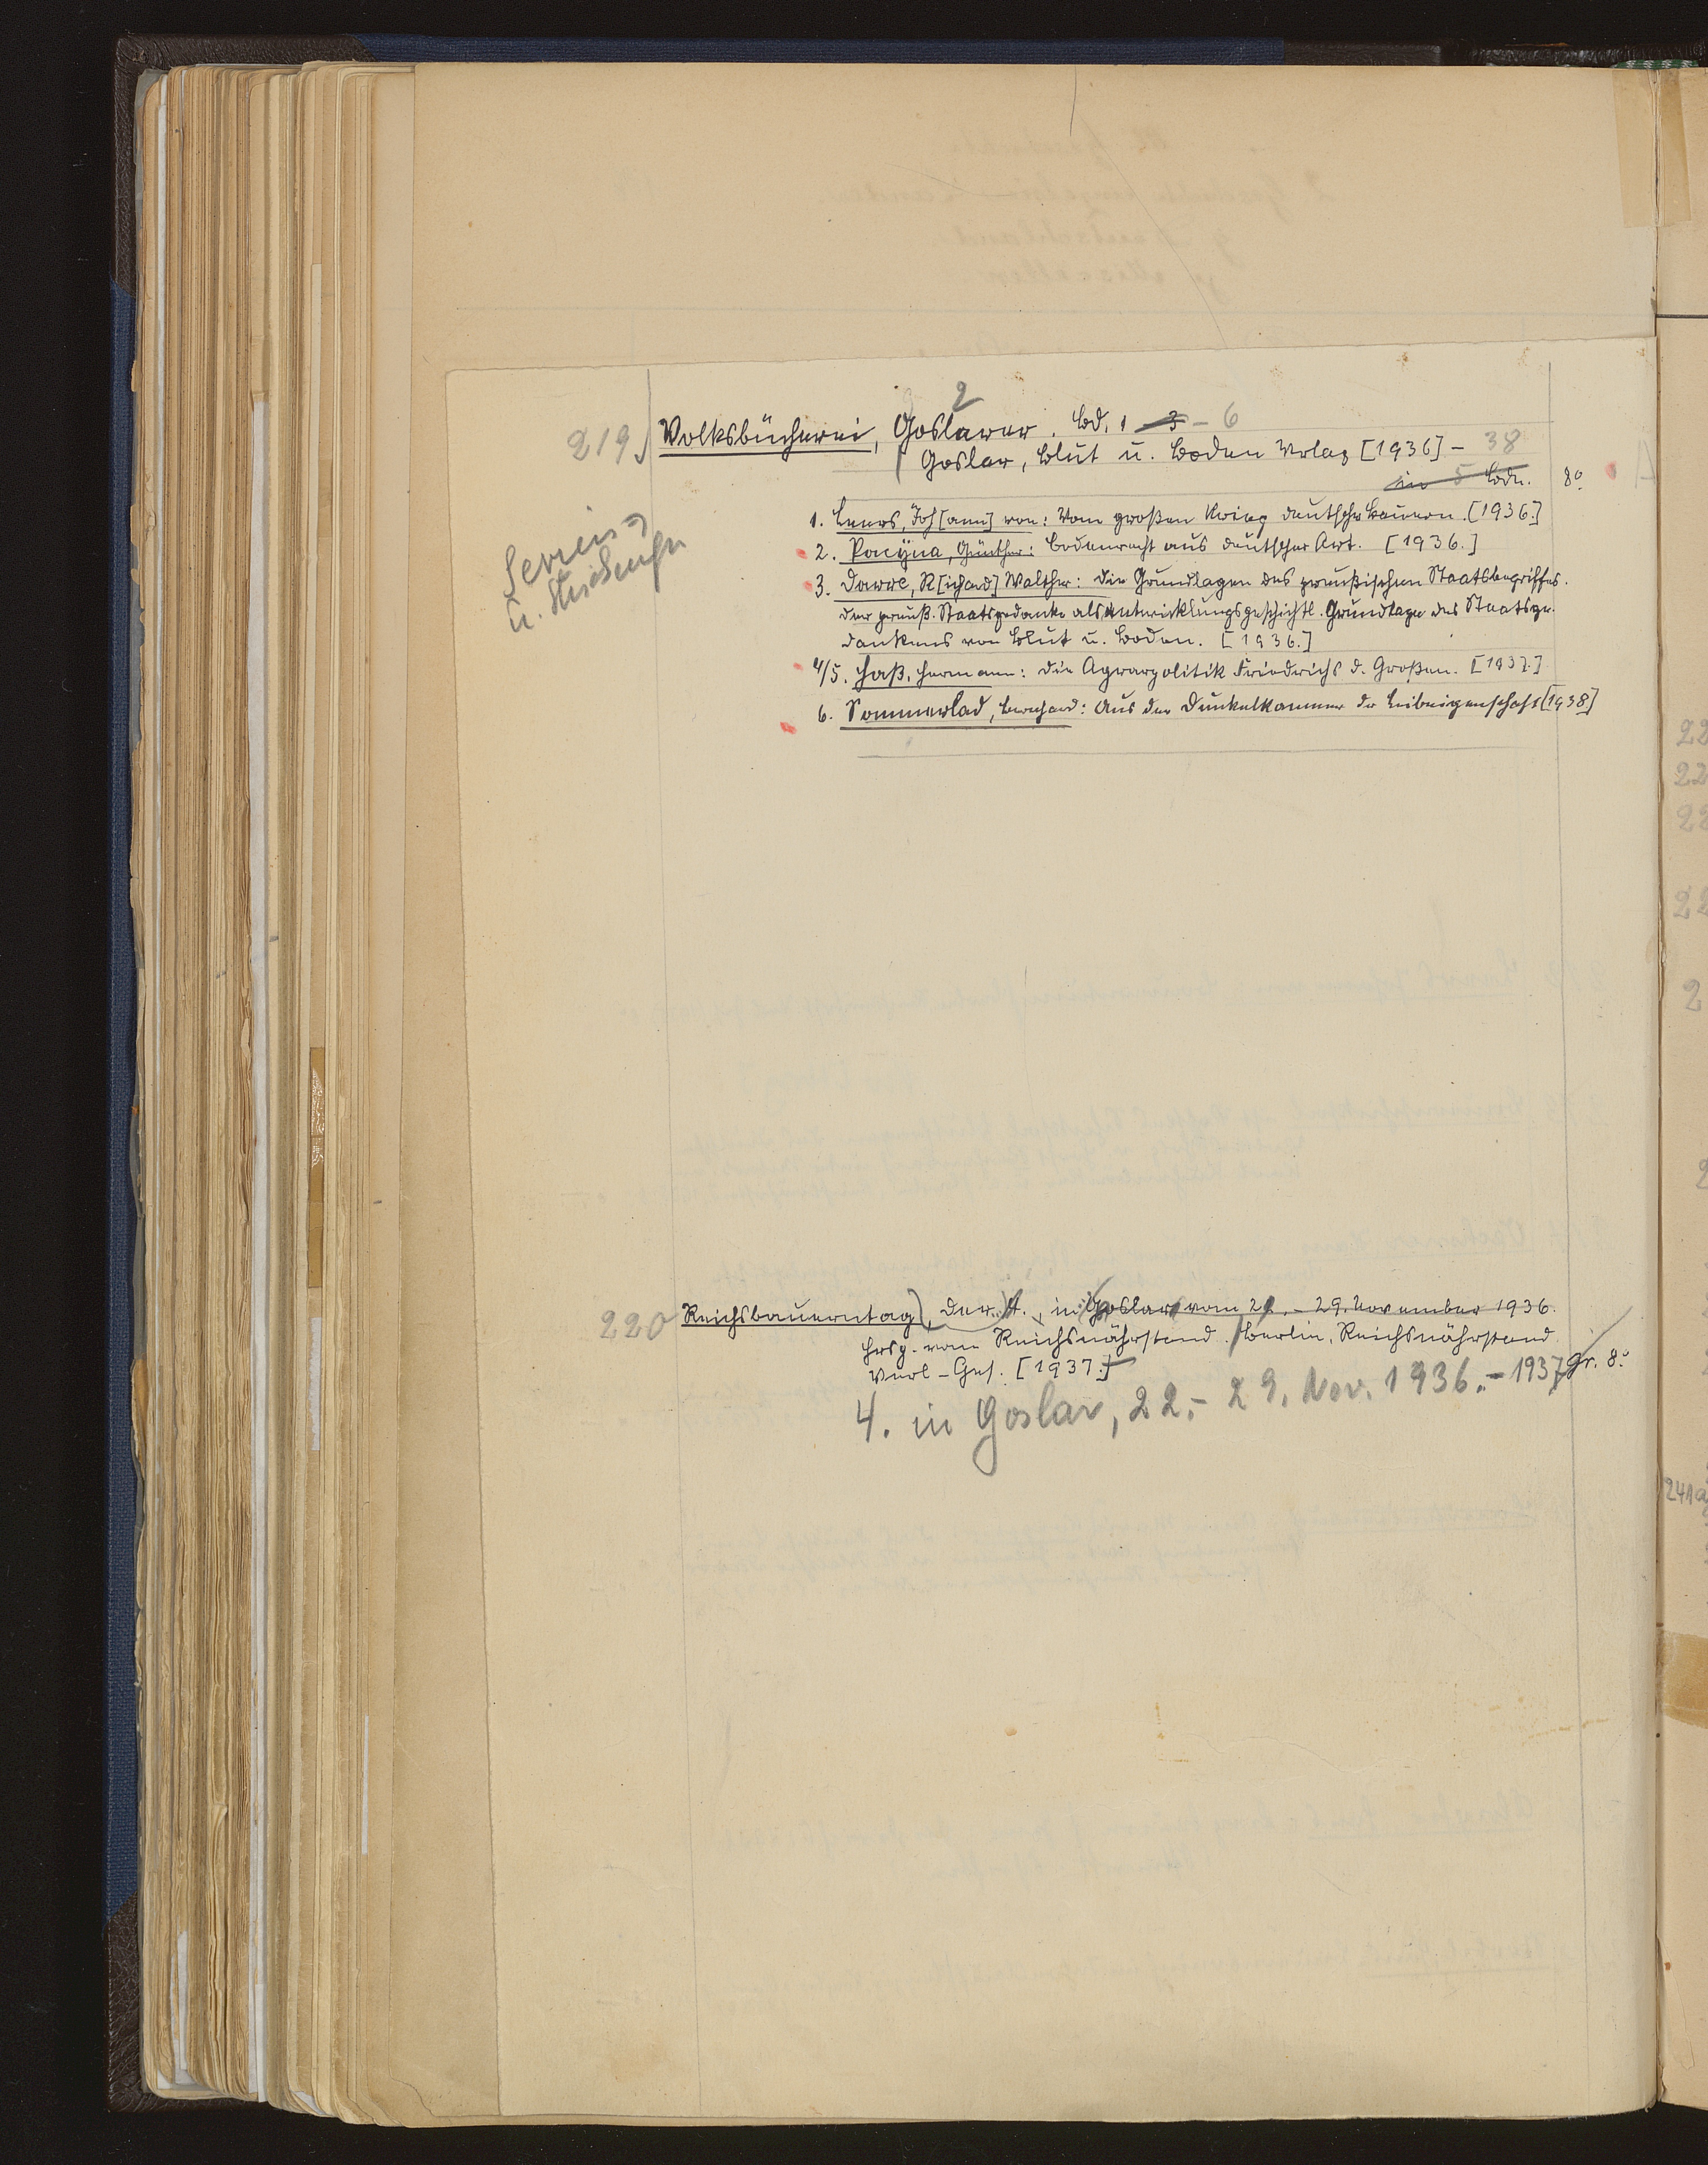 2
219 Volksbücherei, Goslarer. Bd. 1 3 - 6
Goslar, Blut u. Boden Verlag [1936] - 38
in 5 Bdn. 8°
1. Leers, Joh[ann] von: Vom großen Krieg deutscher Bauern. [1936.]
2. Pacyna, Günther: Bodenrecht aus deutscher Art. [1936.]
3. Darré, R[ichard] Walther: Die Grundlagen des preußischen Staatsbegriffes.
Der preuß. Staatsgedanke als entwicklungsgeschichtl. Grundlage des Staatsge-
dankens von Blut u. Boden. [1936.]
4/5. Haß, Hermann: Die Agrarpolitik Friedrichs d. Großen. [1937.]
6. Sommerlad, Bernhard: Aus der Dunkelkammer der Leibeigenschaft [1938]
Serien =
u.
220 Reichsbauerntag, Der 4., in Goslar vom 22. - 29. November 1936.
Hrsg. vom Reichsnährstand. Berlin, Reichsnährstand
Verl.-Ges. [1937.] gr. 8°
4. in Goslar, 22.- 29. Nov. 1936. - 1937
22
22
22
22
2
2
241a